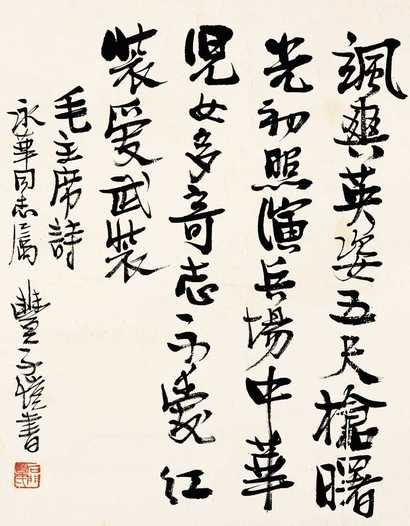 颯爽英姿五尺槍曙
光初照演兵場中華
兒女多奇志不愛紅
裝愛武裝
毛主席詩
永華同志屬
豐子愷書